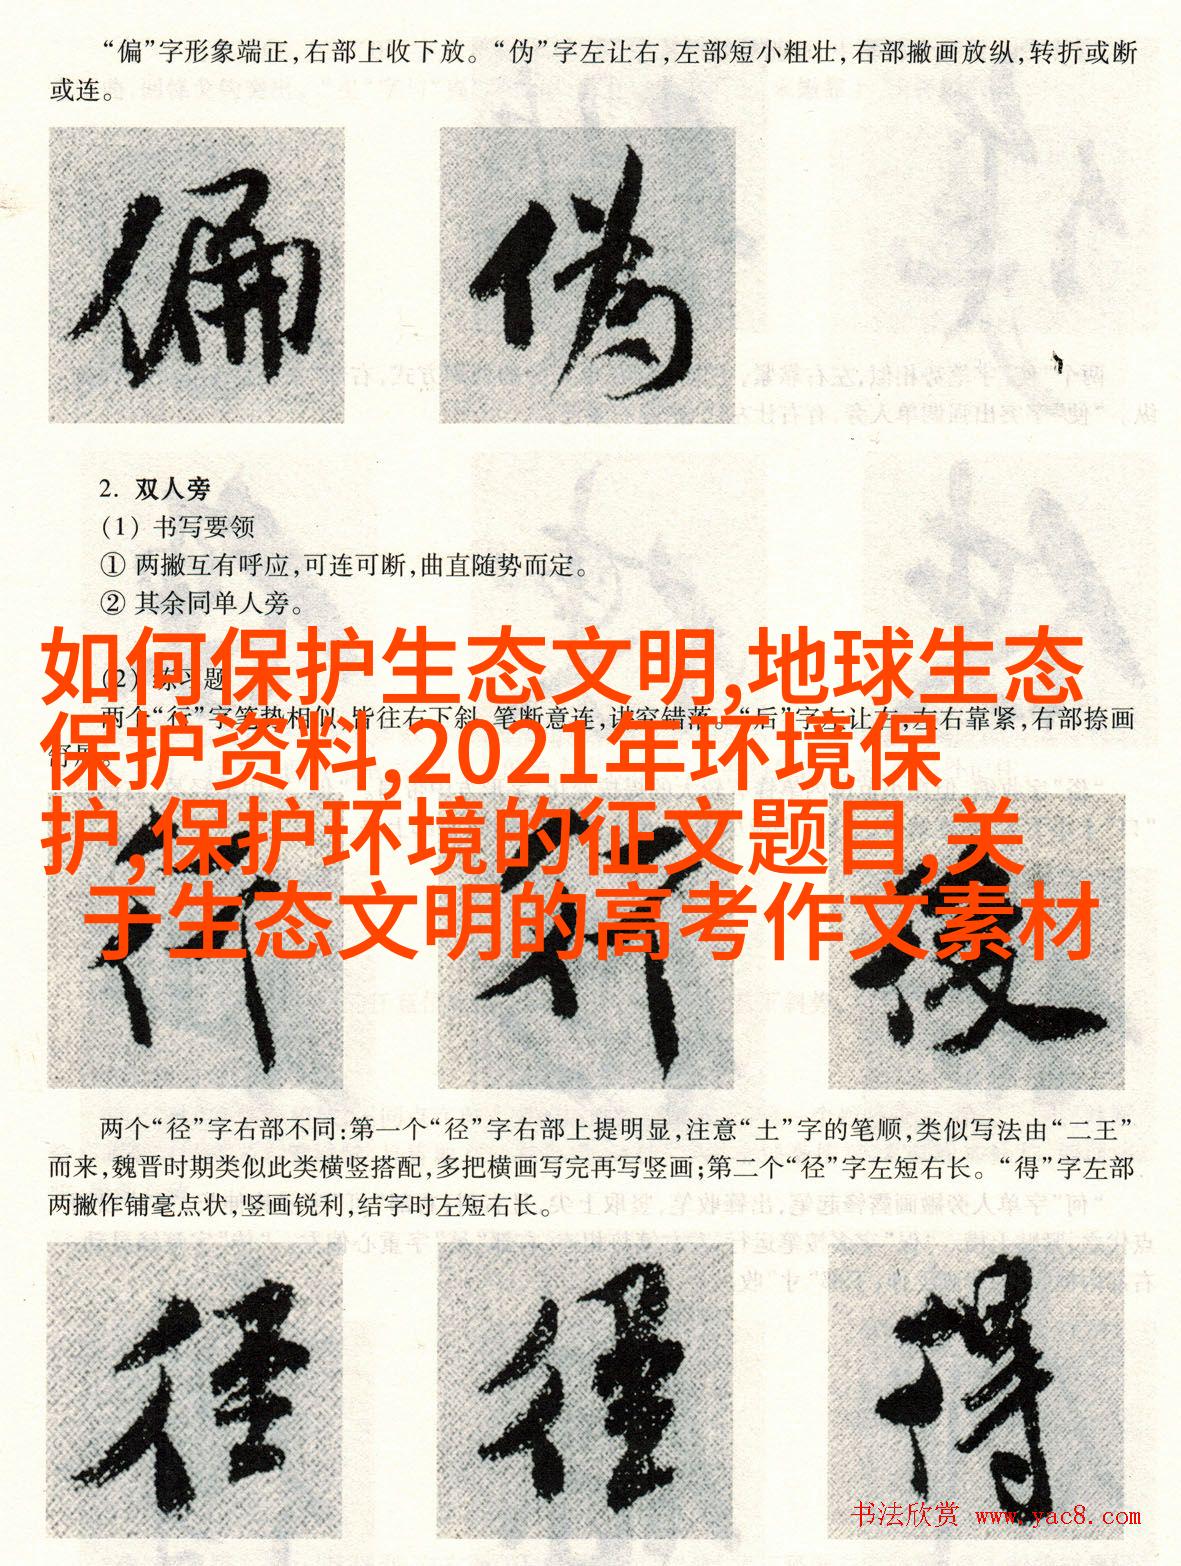 “偏”字形象端正,右部上收下放。“伪”字左让右,左部短小粗壮,右部撇画放纵,转折或断
或连。
偏 偽
2. 双人旁
(1) 书写要领
① 两撇互有呼应,可连可断,曲直随势而定。
② 其余同单人旁。
如何保护生态文明,地球生态
(2) 练习题
两个“行”字笔势相似,皆往右下斜,笔断意连,“后”字左让右,左右靠紧,右部捺画
保护资料,2021年环境保
护,保护环境的征文题目,关
于生态文明的高考作文素材
行 行 後
两个“径”字右部不同:第一个“径”字右部上提明显,注意“土”字的笔顺,类似写法由“二王”
而来,魏晋时期类似此类横竖搭配,多把横画写完再写竖画;第二个“径”字左短右长。“得”字左部
两撇作铺毫点状,竖画锐利,结字时左短右长。
径 径 得
书法欣赏 www.yac8.com